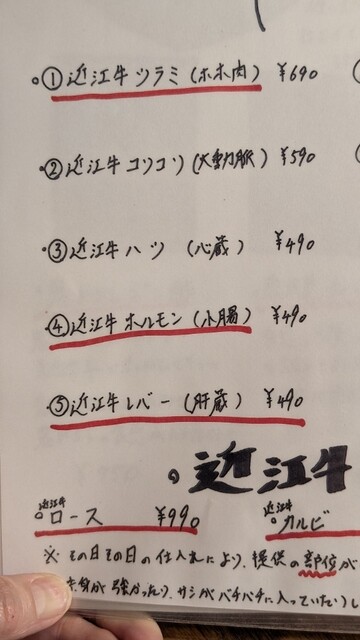 ①近江牛ツラミ(ホホ肉) ¥690
②近江牛コリコリ(大動脈) ¥590
③近江牛ハツ (心蔵) ¥490
④近江牛ホルモン(小腸) ¥490
⑤近江牛レバー(肝蔵) ¥490
近江牛
近江牛
ロース ¥990
近江牛
カルビ
※その日その日の仕入れにより、提供の部位が
赤身が強かったり、サシがバチバチに入っていたりし